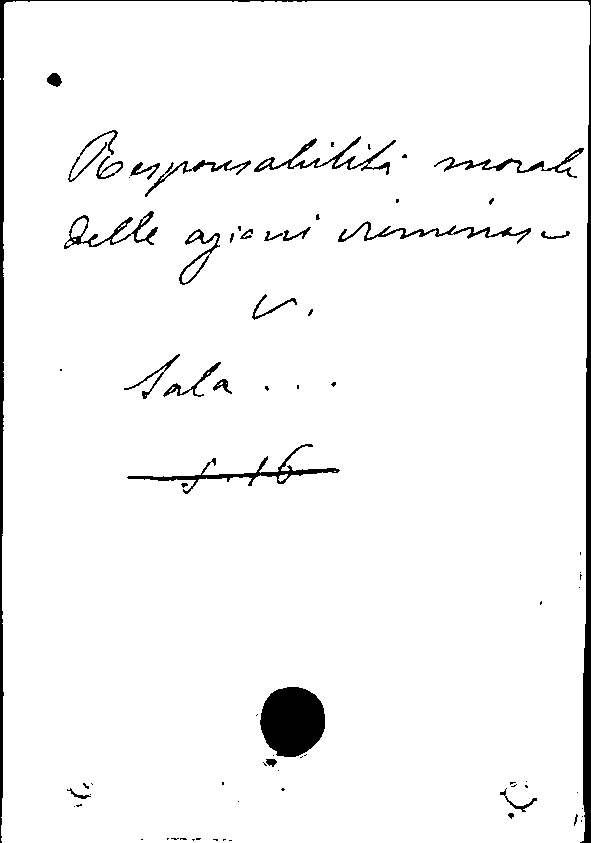 Responsabilità morale
delle azioni criminose
v.
Sala ...
S. 16